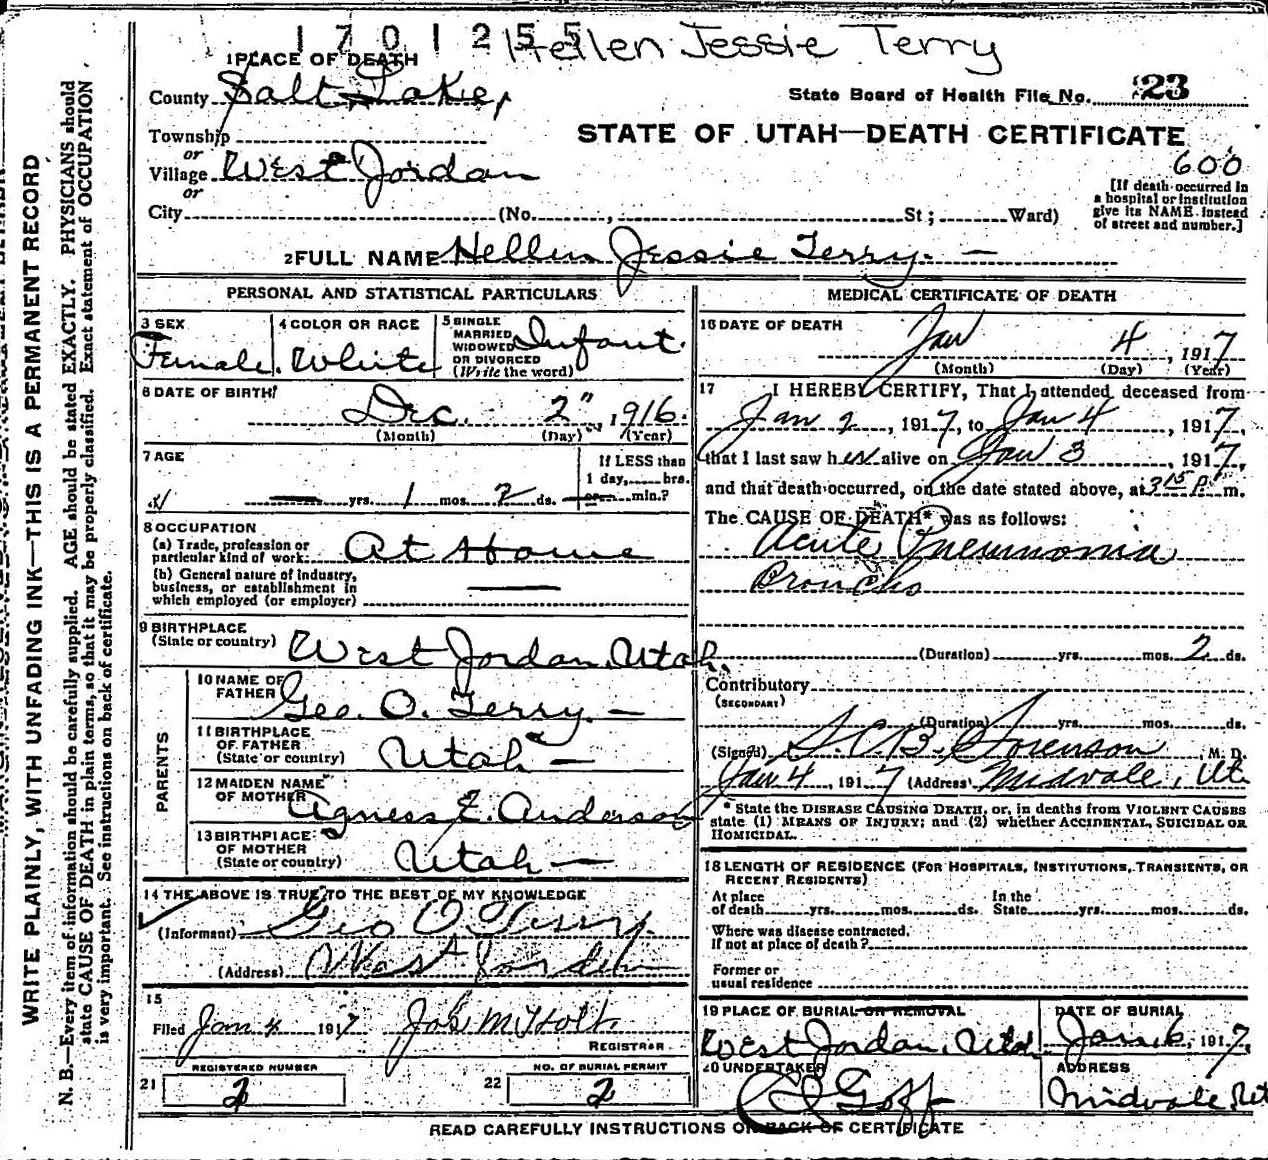 1701255 Hellen Jessie Terry
1 PLACE OF DEATH
County Salt Lake,
State Board of Health File No. 23
Township
or
STATE OF UTAH—DEATH CERTIFICATE
Village West Jordan
600
or
City (No. , St; Ward)
[If death occurred in
a hospital or institution
give its NAME instead
of street and number.]
2 FULL NAME Hellen Jessie Terry. —
PERSONAL AND STATISTICAL PARTICULARS
3 SEX
Female.
4 COLOR OR RACE
White
5 SINGLE
MARRIED
WIDOWED
OR DIVORCED
(Write the word)
Infant.
6 DATE OF BIRTH
Dec. 2" , 1916.
(Month) (Day) (Year)
7 AGE
— yrs. 1 mos. 2 ds.
If LESS than
1 day, hrs.
or min.?
8 OCCUPATION
(a) Trade, profession or
particular kind of work At Home
(b) General nature of industry,
business, or establishment in
which employed (or employer) —
9 BIRTHPLACE
(State or country) West Jordan, Utah.
PARENTS
10 NAME OF
FATHER Geo. O. Terry. —
11 BIRTHPLACE
OF FATHER
(State or country) Utah —
12 MAIDEN NAME
OF MOTHER Agness E. Anderson
13 BIRTHPLACE
OF MOTHER
(State or country) Utah —
14 THE ABOVE IS TRUE TO THE BEST OF MY KNOWLEDGE
(Informant) Geo O Terry.
(Address) West Jorden
15
Filed Jan 4 1917 Job. M. Holt.
REGISTRAR
21 REGISTERED NUMBER
2
22 NO. OF BURIAL PERMIT
2
MEDICAL CERTIFICATE OF DEATH
16 DATE OF DEATH
Jan 4 , 1917
(Month) (Day) (Year)
17 I HEREBY CERTIFY, That I attended deceased from
Jan 2 , 1917, to Jan 4 , 1917,
that I last saw her alive on Jan 3 , 1917,
and that death occurred, on the date stated above, at 3 15 P. m.
The CAUSE OF DEATH* was as follows:
Acute Pneumonia
Broncho
(Duration) yrs. mos. 2 ds.
Contributory
(SECONDARY)
(Duration) yrs. mos. ds.
(Signed) S. C. B. Sorenson , M. D.
Jan 4 , 1917 (Address) Midvale, Ut
* State the DISEASE CAUSING DEATH, or, in deaths from VIOLENT CAUSES
state (1) MEANS OF INJURY; and (2) whether ACCIDENTAL, SUICIDAL OR
HOMICIDAL.
18 LENGTH OF RESIDENCE (FOR HOSPITALS, INSTITUTIONS, TRANSIENTS, OR
RECENT RESIDENTS)
At place
of death yrs. mos. ds.
In the
State yrs. mos. ds.
Where was disease contracted,
if not at place of death?
Former or
usual residence
19 PLACE OF BURIAL OR REMOVAL
West Jordan, Utah
DATE OF BURIAL
Jan. 6, 1917,
20 UNDERTAKER
Goff
ADDRESS
Midvale, Ut
READ CAREFULLY INSTRUCTIONS ON BACK OF CERTIFICATE
WRITE PLAINLY, WITH UNFADING INK—THIS IS A PERMANENT RECORD
N. B.—Every item of information should be carefully supplied. AGE should be stated EXACTLY. PHYSICIANS should
state CAUSE OF DEATH in plain terms, so that it may be properly classified. Exact statement of OCCUPATION
is very important. See instructions on back of certificate.